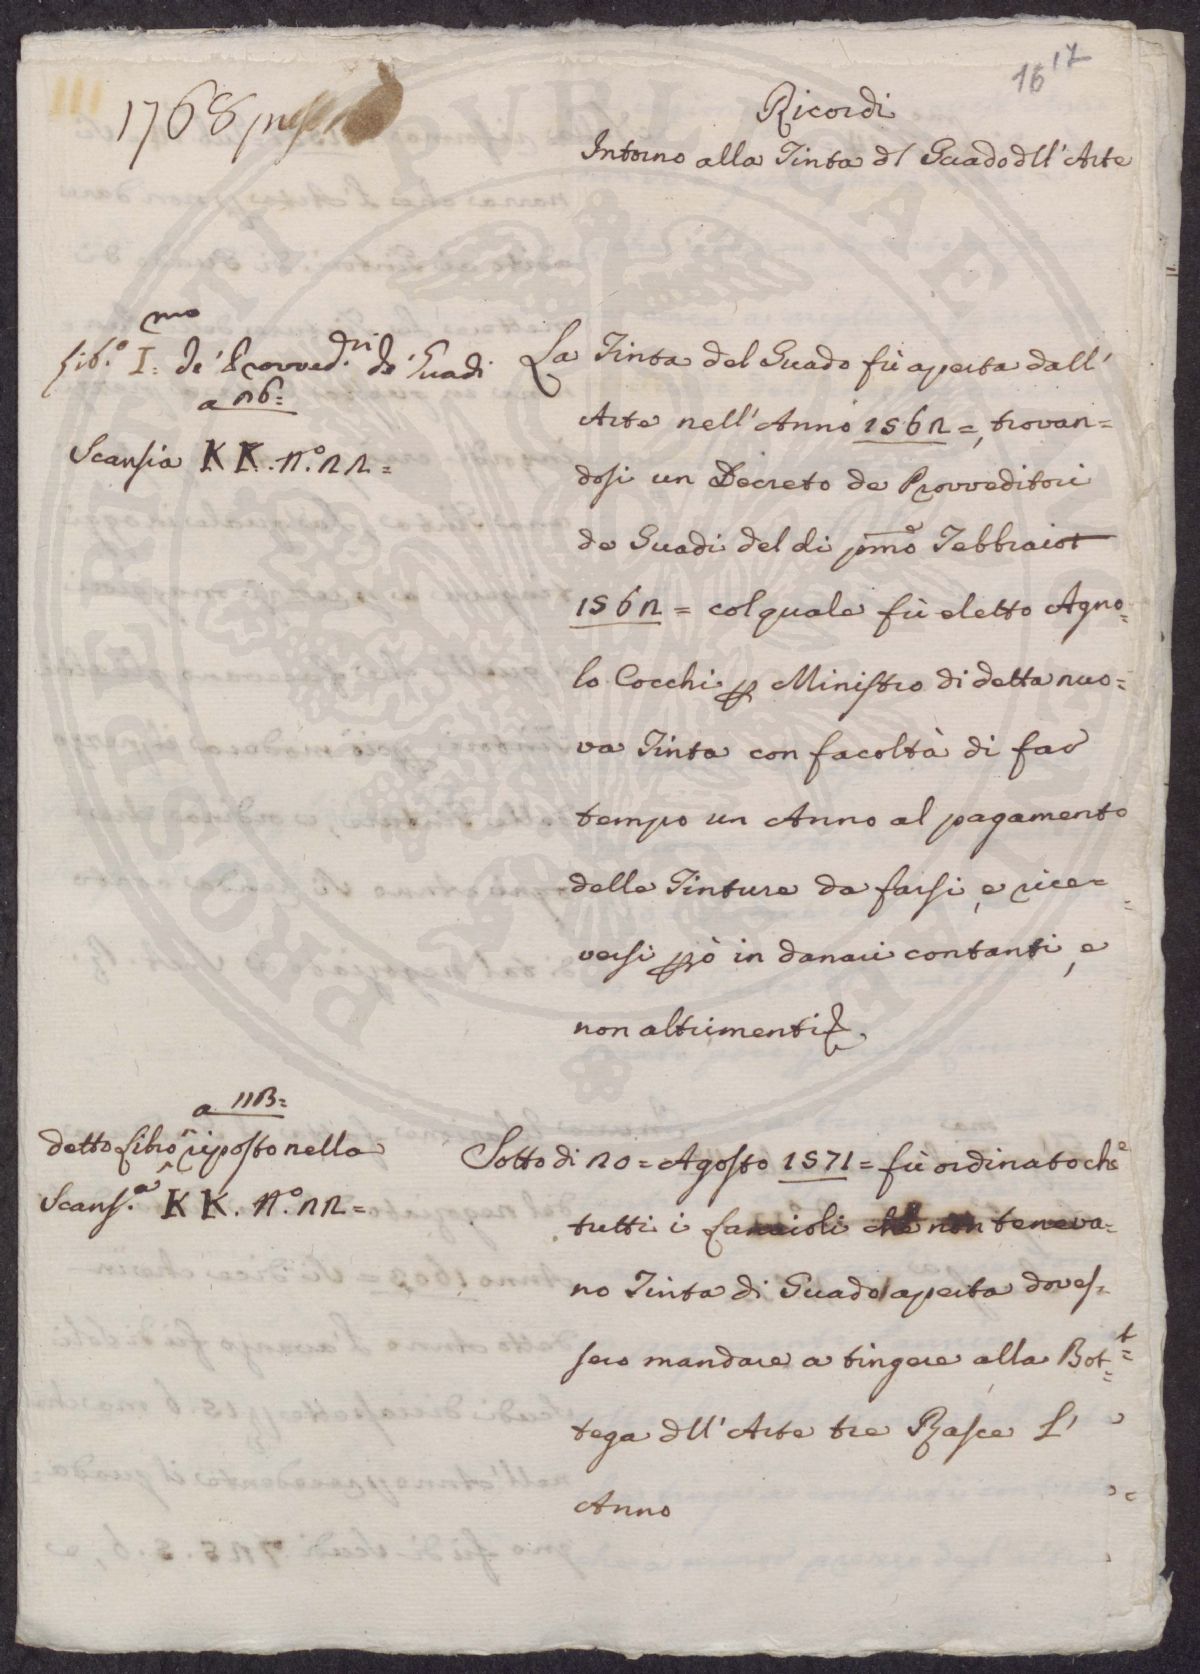 16 17
1768
Ricordi
Intorno alla Tinta dl Guado dll' Arte
Lib.º I.mo de' Provved.ri de' Guadi
a 26=
Scansia KK. N.º 22=
La Tinta del Guado fù aperta dall'
Arte nell'Anno 1562=, trovan=
dosi un Decreto de Provveditori
de Guadi del di pmo Febbraio
1562= col quale fù eletto Agno=
lo Cocchi p Ministro di detta nuo=
va Tinta con facoltà di far
tempo un Anno al pagamento
delle Tinture da farsi, e rice=
versi pò in danari contanti, e
non altrimenti
a 113=
detto Libro riposto nella
Scans.a KK. N.º 22=
Sotto di 20= Agosto 1571= fù ordinato che
tutti i Lanaioli che non teneva=
no Tinta di Guado aperta doves=
sero mandare a tingere alla Bot=
tega dll' Arte tre Rasce L'
Anno